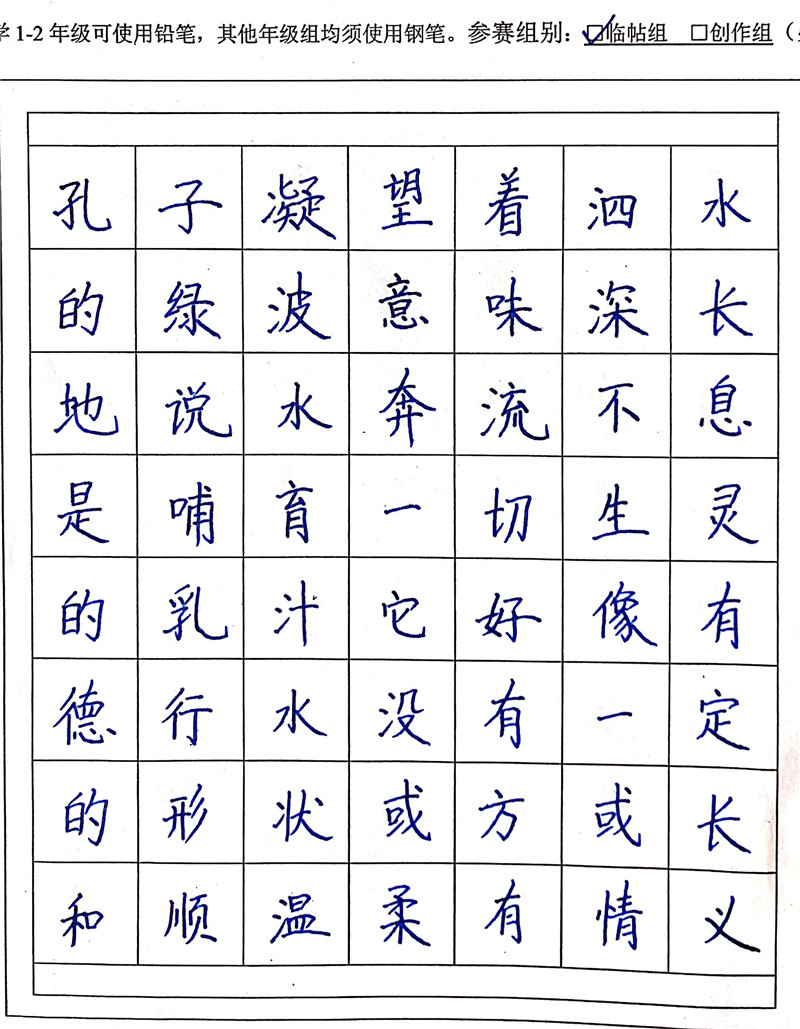 学1-2年级可使用铅笔，其他年级组均须使用钢笔。参赛组别：☑临帖组 □创作组（
孔子凝望着泗水
的绿波意味深长
地说水奔流不息
是哺育一切生灵
的乳汁它好像有
德行水没有一定
的形状或方或长
和顺温柔有情义